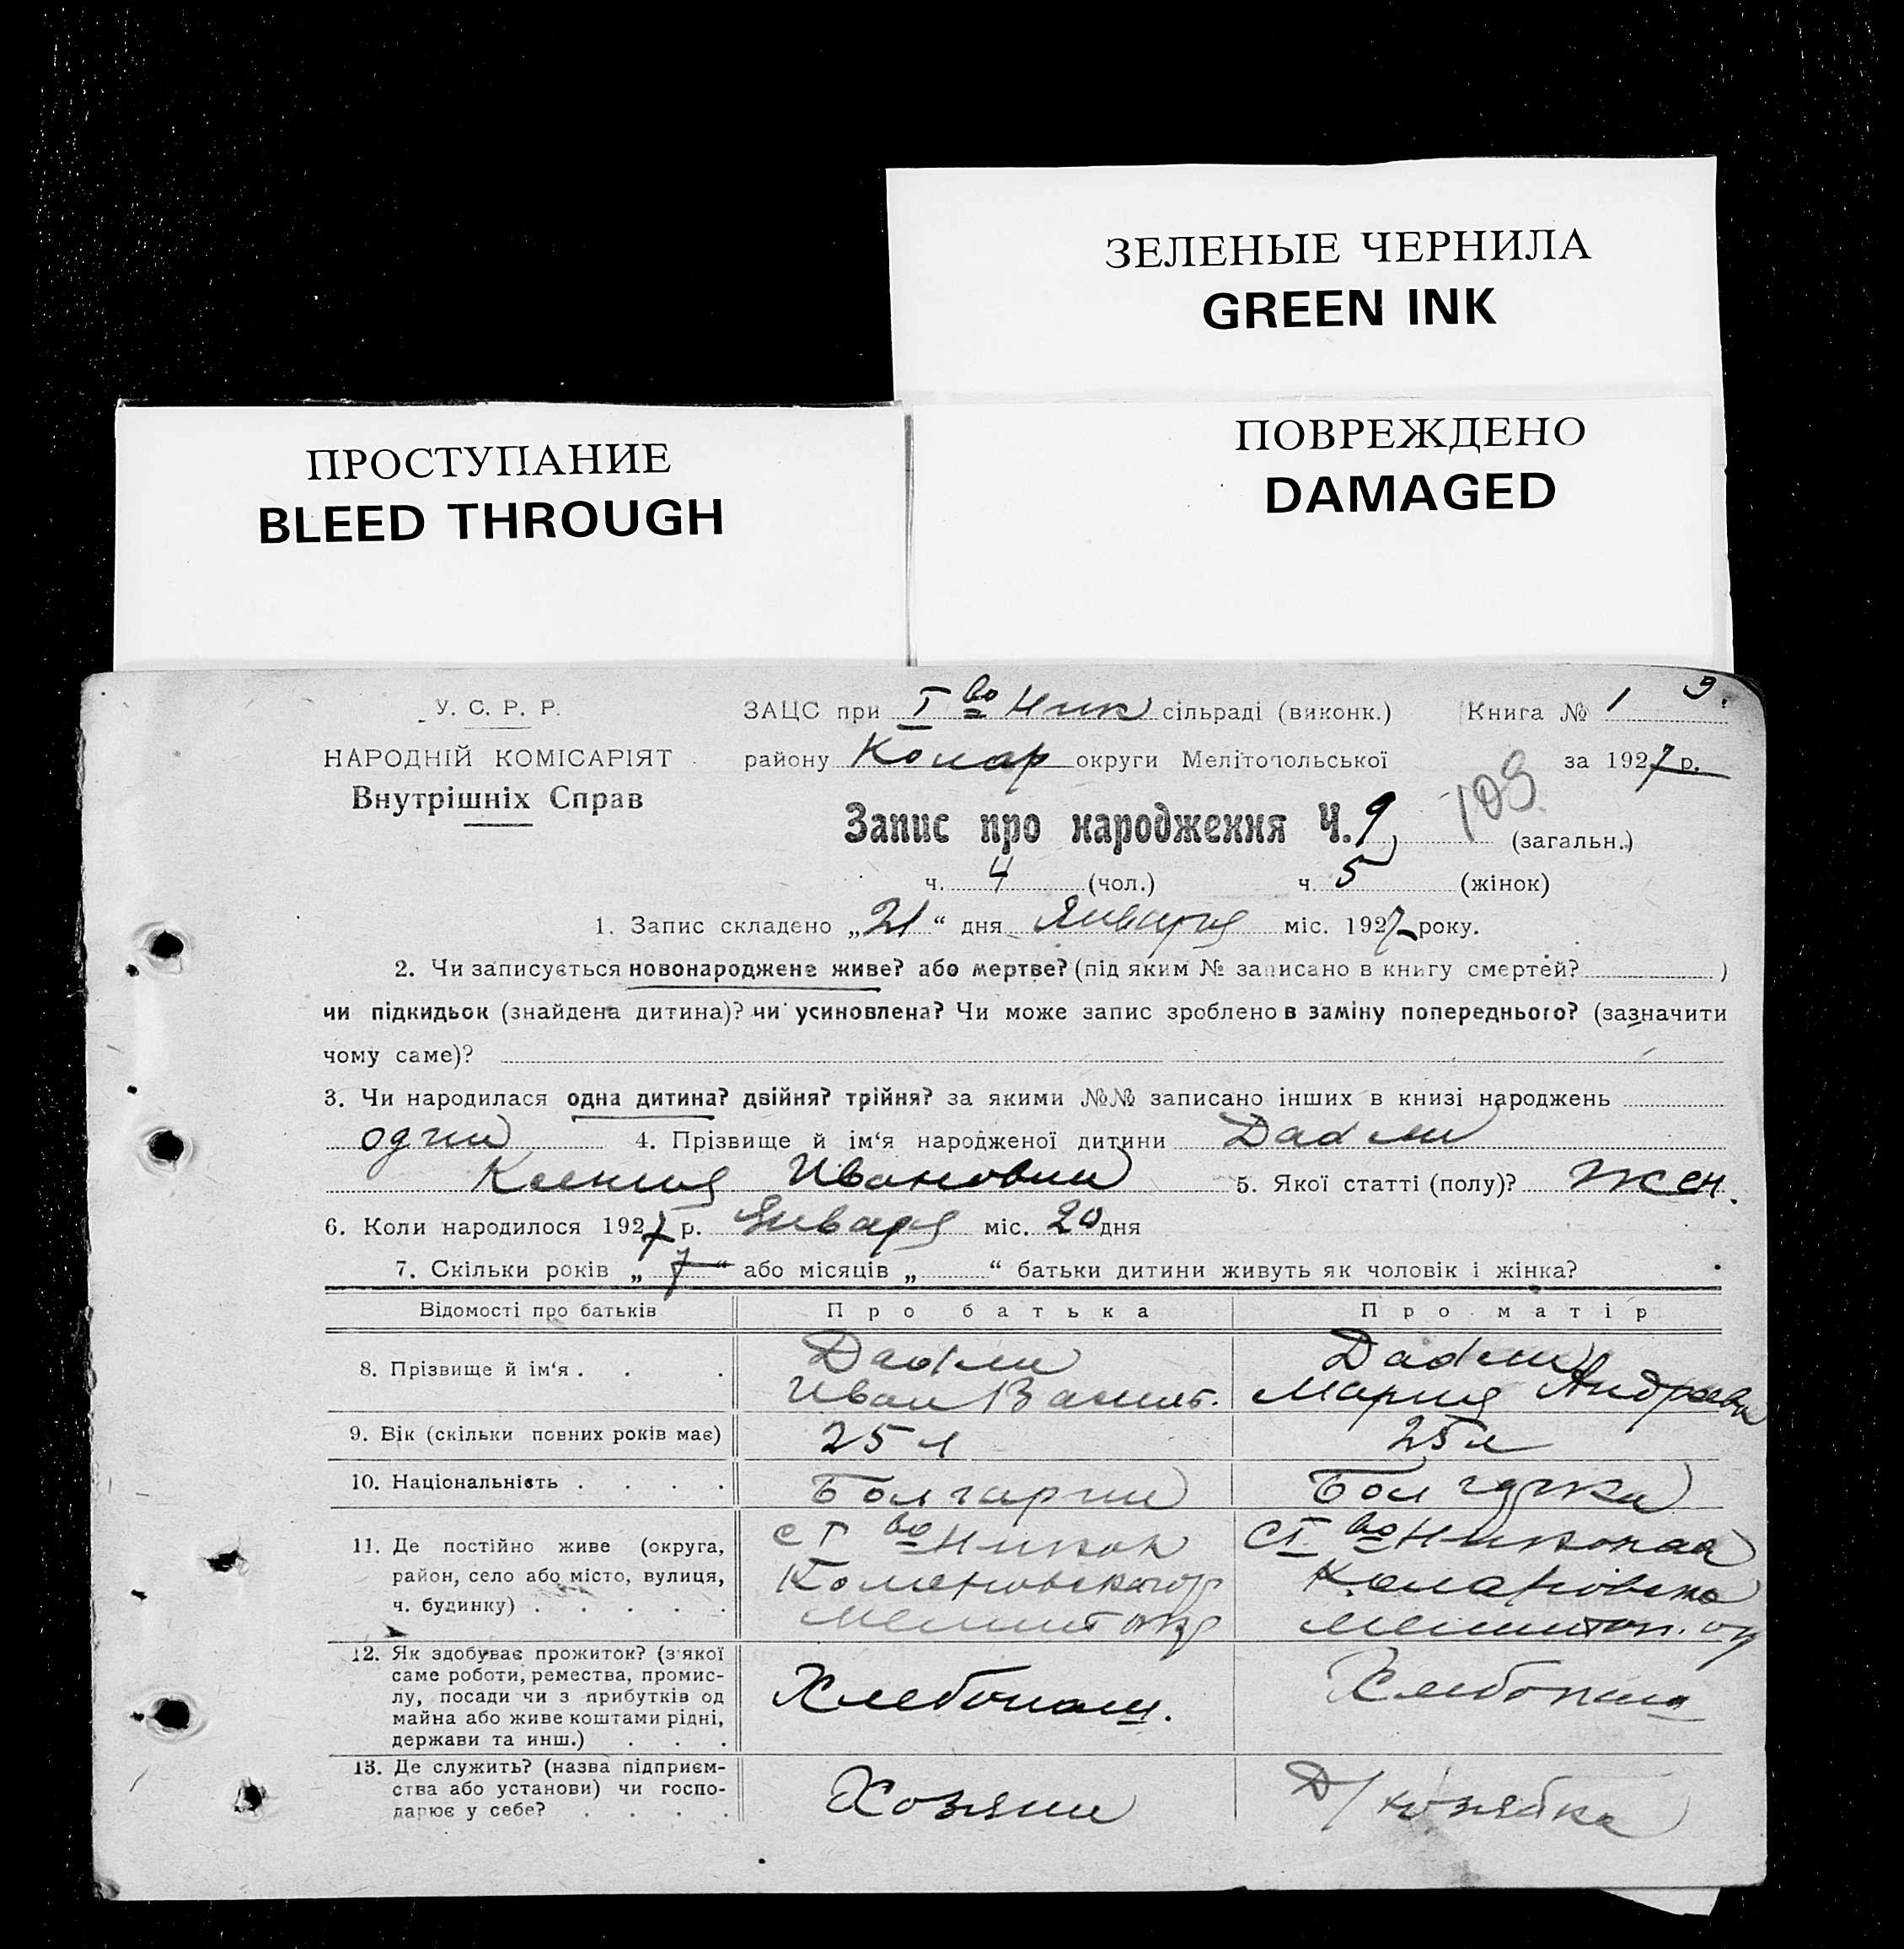 ЗЕЛЕНЫЕ ЧЕРНИЛА
GREEN INK
ПРОСТУПАНИЕ
BLEED THROUGH
ПОВРЕЖДЕНО
DAMAGED
У. С. Р. Р.
НАРОДНІЙ КОМІСАРІЯТ
Внутрішніх Справ
ЗАЦС при I во Ник сільраді (виконк.) Книга № 1 9.
району Колар округи Мелітопольської за 1927 р.
109
Запис про народження Ч. 9 (загальн.)
ч. 4 (чол.) ч. 5 (жінок)
1. Запис складено „21“ дня Января міс. 1927 року.
2. Чи записується новонароджене живе? або мертве? (під яким № записано в книгу смертей? )
чи підкидьок (знайдена дитина)? чи усиновлена? Чи може запис зроблено в заміну попереднього? (зазначити
чому саме)?
3. Чи народилася одна дитина? двійня? трійня? за якими №№ записано інших в книзі народжень
4. Прізвище й ім‘я народженої дитини
Ксения Ивановни 5. Якої статті (полу)? Жен.
6. Коли народилося 1927 р. Января міс. 20 дня
7. Скільки років „ 7 “ або місяців „ “ батьки дитини живуть як чоловік і жінка?
Відомості про батьків Про батька Про матір
8. Прізвище й ім‘я . . .
Иван Васил. Мария Андреевн
9. Вік (скільки повних років має) 25 л 25 л
10. Національність . . . . Болгарин Болгарка
11. Де постійно живе (округа,
район, село або місто, вулиця,
ч. будинку) . . . . .
с I во Никол
Коларовского р
Мелитокр
с I во Николаа
Коларовско
Мелитоп. ок
12. Як здобуває прожиток? (з'якої
саме роботи, ремества, промис-
лу, посади чи з прибутків од
майна або живе коштами рідні,
держави та инш.) . . .
Хлебопаш.
Хлебопаш
13. Де служить? (назва підприєм-
ства або установи) чи госпо-
дарює у себе? . . . .
Хозяин
Д/хозяйка